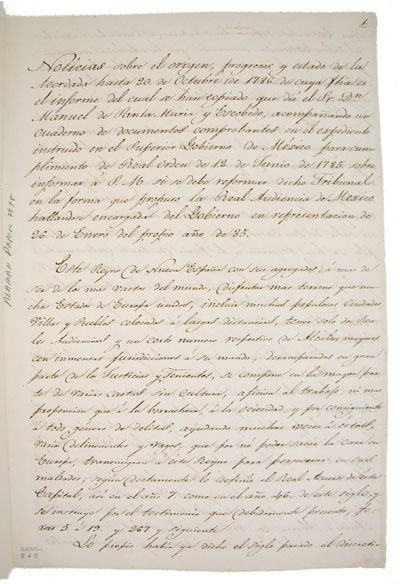 1.
Noticias sobre el origen, progresos y estado de la
Acordada hasta 20 de Octubre de 1786 de cuya fha es
el informe del cual se han copiado que dió el Sr. Dn.
Manuel de Santa Maria y Escobedo, acompañando un
cuaderno de documentos comprobantes en el expediente
instruido en el Superior Gobierno de México para cum-
plimiento de Real orden de 12 de Junio de 1785. sobre
informar á S. M. si se debe reformar dicho Tribunal
en la forma que propuso la Real Audiencia de México
hallandose encargada del Gobierno en representacion de
26 de Enero del propio año de 85.
Este Reyno de Nueva España con sus agregados á mas de
ser de los mas vastos del mundo, disfruta mas terreno que mu-
chos Estados de Europa unidos, incluye muchas populosas Ciudades
Villas y Pueblos colocados á largas distancias, tener solo dos Rea-
les Audiencias y un corto numero respectivo de Alcaldes mayores
con inmensas jurisdicciones á su mando, desamparadas en gran
parte de las Justicias y Tenientes, se compone en la mayor par-
te de varias castas sin cultura, aficion al trabajo, ni mas
propension que á la borrachera, á la ociosidad, y por consiguiente
á todo genero de delitos, ayudando muchas veces á estos
varios delincuentes y vagos, que por no poder sacar la cara en
Europa, transmigran á éste Reyno para perseverar en sus
maldades, segun doctamente lo definió el Real Acuerdo de ésta
Capital, asi en el año 7 como en el año 46. de éste siglo, y
se instruye por el testimonio que debidamente presento, fo-
xas 5 á 19. y 267 y siguiente.
Lo propio habia ya dicho el siglo pasado el